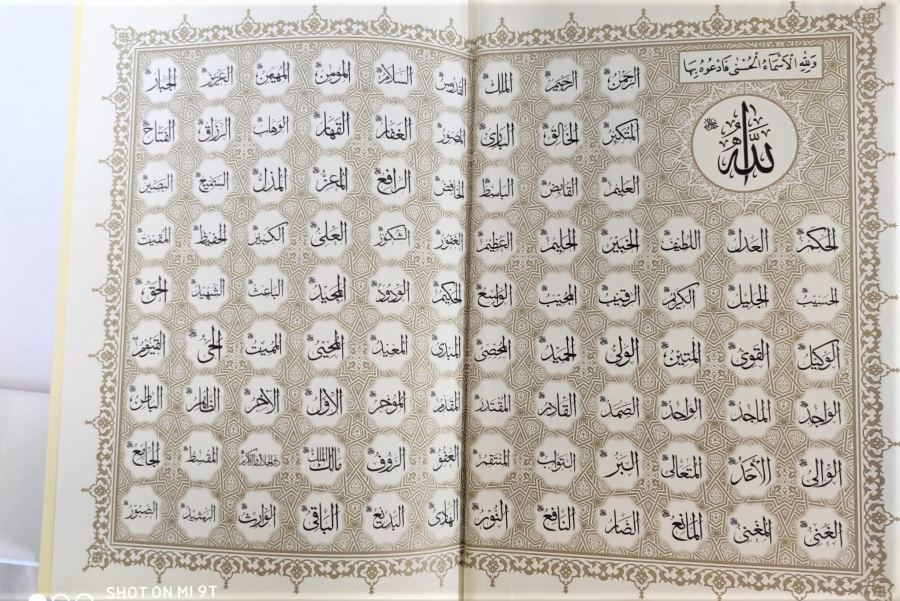 وَلِلّٰهِ الْاَسْمَاءُ الْحُسْنٰى فَادْعُوهُ بِهَا
الله جل جلاله
الرحمن الرحيم الملك القدوس السلام المؤمن المهيمن العزيز الجبار
المتكبر الخالق البارئ المصور الغفار القهار الوهاب الرزاق الفتاح
العليم القابض الباسط الخافض الرافع المعز المذل السميع البصير
الحكم العدل اللطيف الخبير الحليم العظيم الغفور الشكور العلى الكبير الحفيظ المقيت
الحسيب الجليل الكريم الرقيب المجيب الواسع الحكيم الودود المجيد الباعث الشهيد الحق
الوكيل القوى المتين الولى الحميد المحصى المبدئ المعيد المحيى المميت الحى القيوم
الواجد الماجد الواحد الصمد القادر المقتدر المقدم المؤخر الاول الآخر الظاهر الباطن
الوالى الاحد المتعالى البر التواب المنتقم العفو الرؤف مالك الملك ذو الجلال والاكرام المقسط الجامع
الغنى المغنى المانع الضار النافع النور الهادى البديع الباقى الوارث الرشيد الصبور
SHOT ON MI 9T